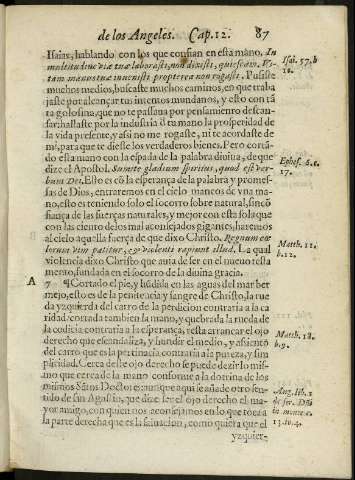 de los Angeles. Cap.12. 87
Isaias, hablando con los que confian en esta mano. In
multitudine viæ tuæ laborasti, non dixisti, quiescam. Vi-
tam manus tuæ inuenisti propterea non rogasti. Pusiste
muchos medios, buscaste muchos caminos, en que traba
jaste por alcançar tus intentos mundanos, y esto con tã
ta golosina, que no te passaua por pensamiento descan-
sar: hallaste por la industria d tu mano la prosperidad de
la vida presente, y assi no me rogaste, ni te acordaste de
mi, para que te diesse los verdaderos bienes. Pero cortã-
do esta mano con la espada de la palabra diuina, de que
dize el Apostol. Sumite gladium spiritus, quod est ver-
bum Dei. Esto es cõ la esperança de la palabra y promes-
sas de Dios, entraremos en el cielo mancos de vna ma-
no, esto es teniendo solo el socorro sobre natural, sin cõ
fiança de las fuerças naturales, y mejor con esta sola que
con las ciento de los mal aconsejados gigantes, haremos
al cielo aquella fuerça de que dixo Christo. Regnum cœ-
lorum vim patitur, & violenti rapiunt illud. La qual
violencia dixo Christo que auia de ser en el nueuo testa
mento, fundada en el socorro de la diuina gracia.
A 7 ¶ Cortado el pie, y hũdida en las aguas del mar ber
mejo, esto es de la penitencia y sangre de Christo, la rue
da yzquierda del carro de la perdicion contraria a la ca
ridad, cortada tambien la mano, y quebrada la rueda de
la codicia contraria a la esperança, resta arrancar el ojo
derecho que escandaliza, y hundir el medio, y assiento
del carro que es la pertinacia contraria a la pureza, y sim
plicidad. Cerca deste ojo derecho se puede dezir lo mis-
mo que cerca de la mano conforme a la dotrina de los
mismos Sãtos Doctores: aunque aqui se añade otro sen-
tido de san Agustin, que dize: ser el ojo derecho el ma-
yor amigo, con quien nos aconsejamos en lo que toca a
la parte derecha que es la saluacion, como quiera que el
yzquier-
Isai. 57. b
10.
Ephes. 6. c.
17.
Matth. 11.
b. 12.
Matth. 18.
b. 9.
Aug. lib. 1
de ser. Dñi
in monte c.
13. to. 4.